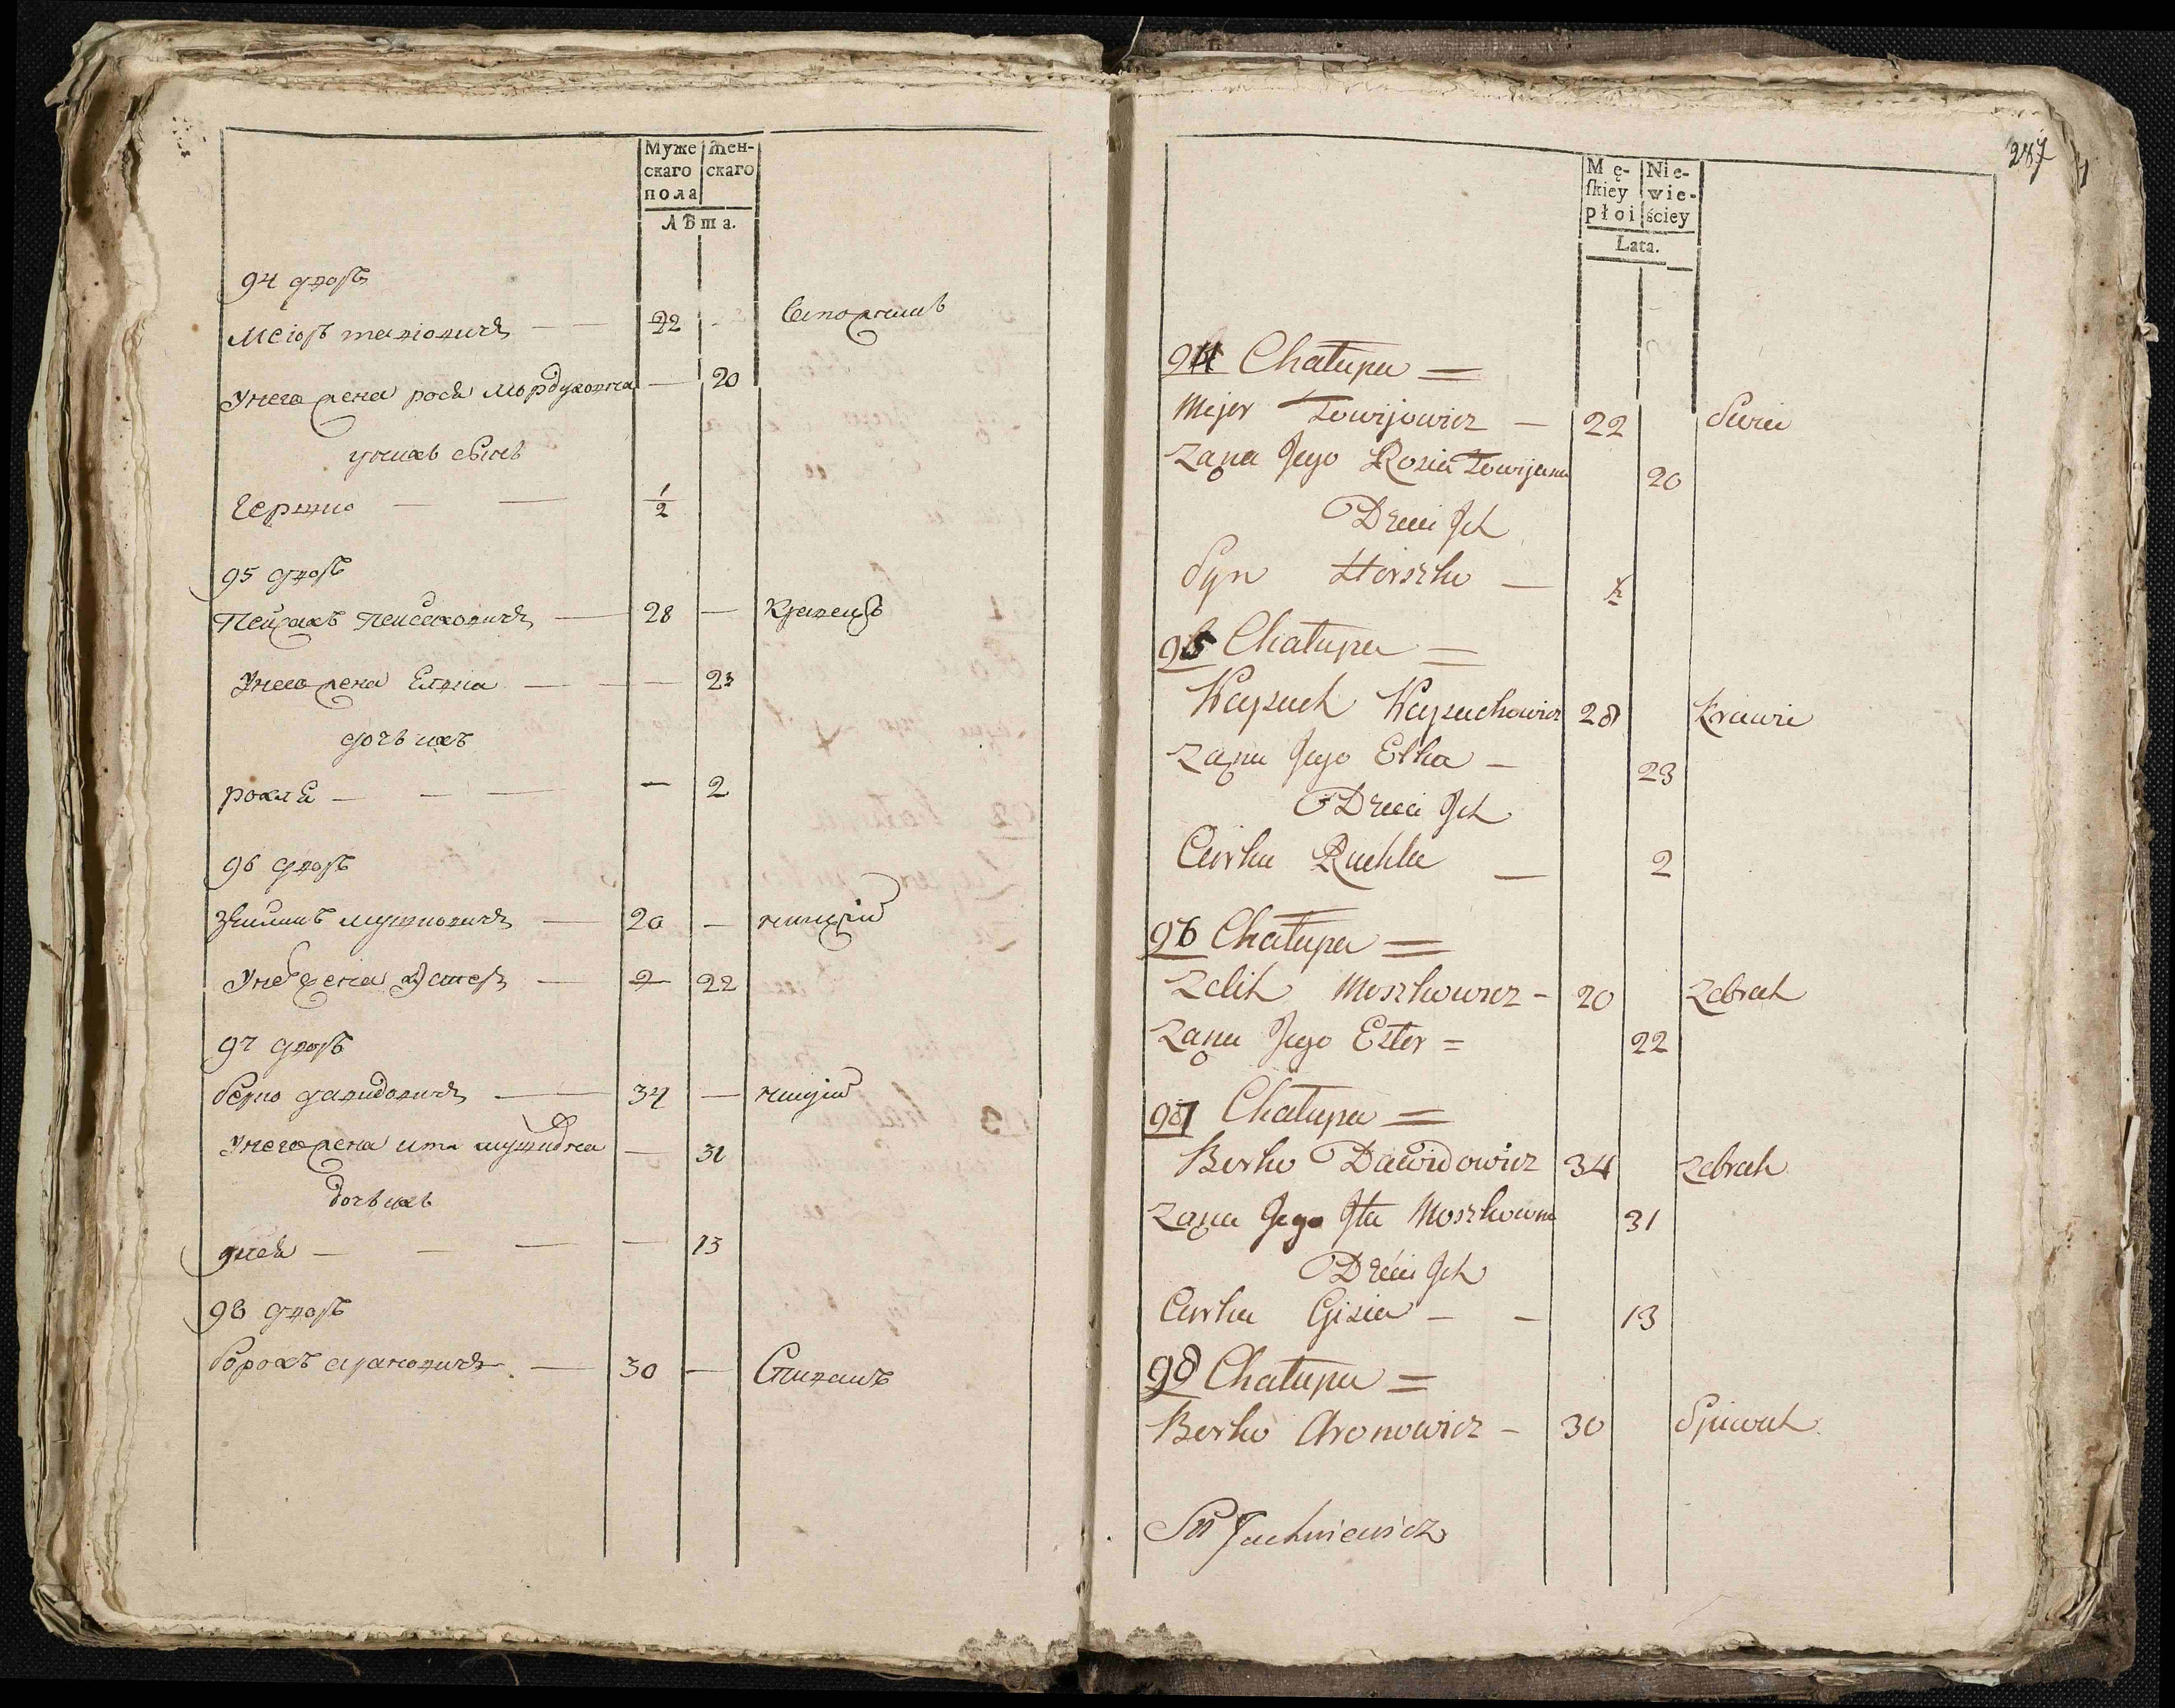 Муже
скаго
пола
жен-
скаго
Лѣта.
94 дворъ
меіоръ тевіовичъ — 22 -
Унего жена рося мордуховна — 20
унихъ сынъ
гершко — — 1/2
95 дворъ
Пейсахъ пейсаховичъ — 28 — кравецъ
Унего жена Елька — — 23
дочь ихъ
рохля — — — — 2
96 дворъ
мушковичъ — 20 — нищій
Унего жена Эстеръ — 22
97 дворъ
берко давидовичъ — 34 — нищій
Унего жена ита — 31
дочь ихъ
— — — — 13
98 дворъ
ароновичъ — 30 — Спивакъ
287
Mę-
skiey
płci
Nie-
wie-
ściey
Lata.
94 Chałupa =
Mejer Towijowicz — 22
Zona Jego Rozia Towijowa 20
Dzieci Jch
Syn Herszko — ½
95 Chałupa =
Waysach Waysachowicz 28 Krawie
Zona Jego Elka — 23
Dzieci Jch
Curka Ruchla — 2
96 Chałupa =
Zelik Moszkowicz - 20 Zebrak
Zona Jego Ester = 22
97 Chałupa =
Berko Dawidowicz 34 Zebrak
Zona Jego Jta Moszkowna 31
Dzieci Jch
Curka Gisia - - 13
98 Chałupa =
Berko Aronowicz - 30 Spiwak
Juchniewicz